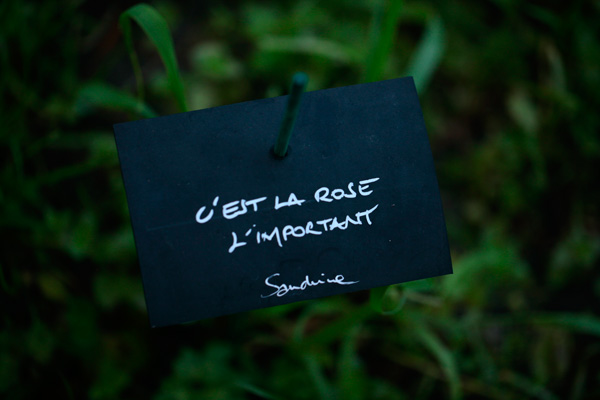 C'EST LA ROSE
L'IMPORTANT
Sandrine